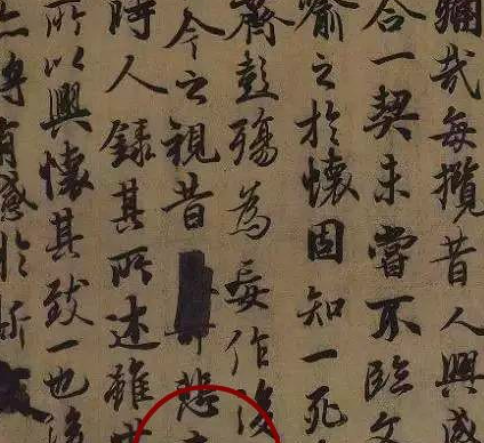 痛哉每攬昔人興感
合一契未嘗不臨文
喻之於懷固知一死
齊彭殤為妄作後
今之視昔悲
時人錄其所述雖世
所以興懷其致一也後
亦將有感於斯文